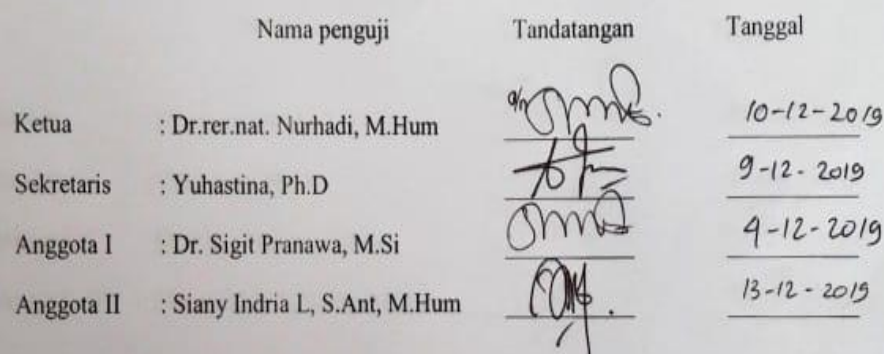 Nama penguji Tandatangan Tanggal
Ketua : Dr.rer.nat. Nurhadi, M.Hum a/n 10-12-2019
Sekretaris : Yuhastina, Ph.D 9-12-2019
Anggota I : Dr. Sigit Pranawa, M.Si 4-12-2019
Anggota II : Siany Indria L, S.Ant, M.Hum 13-12-2019